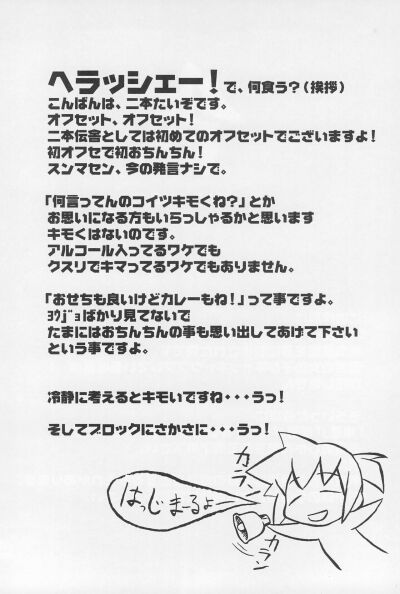 ヘラッシェー！で、何食う？（挨拶）
こんばんは、二本たいぞです。
オフセット、オフセット！
二本伝舎としては初めてのオフセットでございますよ！
初オフセで初おちんちん！
スンマセン、今の発言ナシで。
「何言ってんのコイツキモくね？」とか
お思いになる方もいらっしゃるかと思います
キモくはないのです。
アルコール入ってるワケでも
クスリでキマってるワケでもありません。
「おせちも良いけどカレーもね！」って事ですよ。
ﾖｳｼﾞｮばかり見てないで
たまにはおちんちんの事も思い出してあげて下さい
という事ですよ。
冷静に考えるとキモいですね・・・うっ！
そしてブロックにさかさに・・・うっ！
カラン
はっじまーるよー
カラン